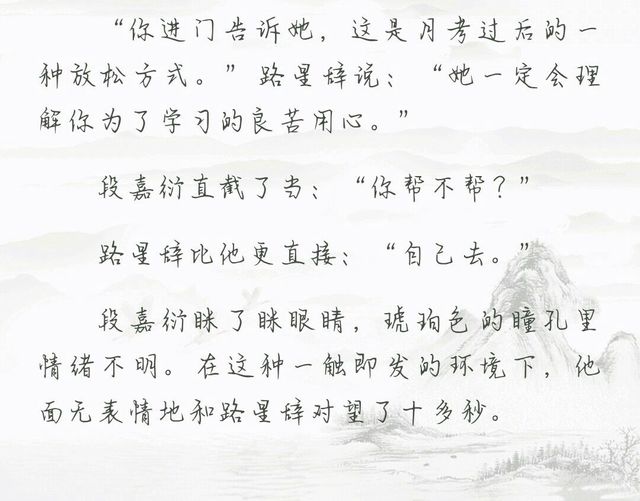 “你进门告诉她，这是月考过后的一
种放松方式。”路星辞说：“她一定会理
解你为了学习的良苦用心。”
段嘉衍直截了当：“你帮不帮？”
路星辞比他更直接：“自己去。”
段嘉衍眯了眯眼睛，琥珀色的瞳孔里
情绪不明。在这种一触即发的环境下，他
面无表情地和路星辞对望了十多秒。